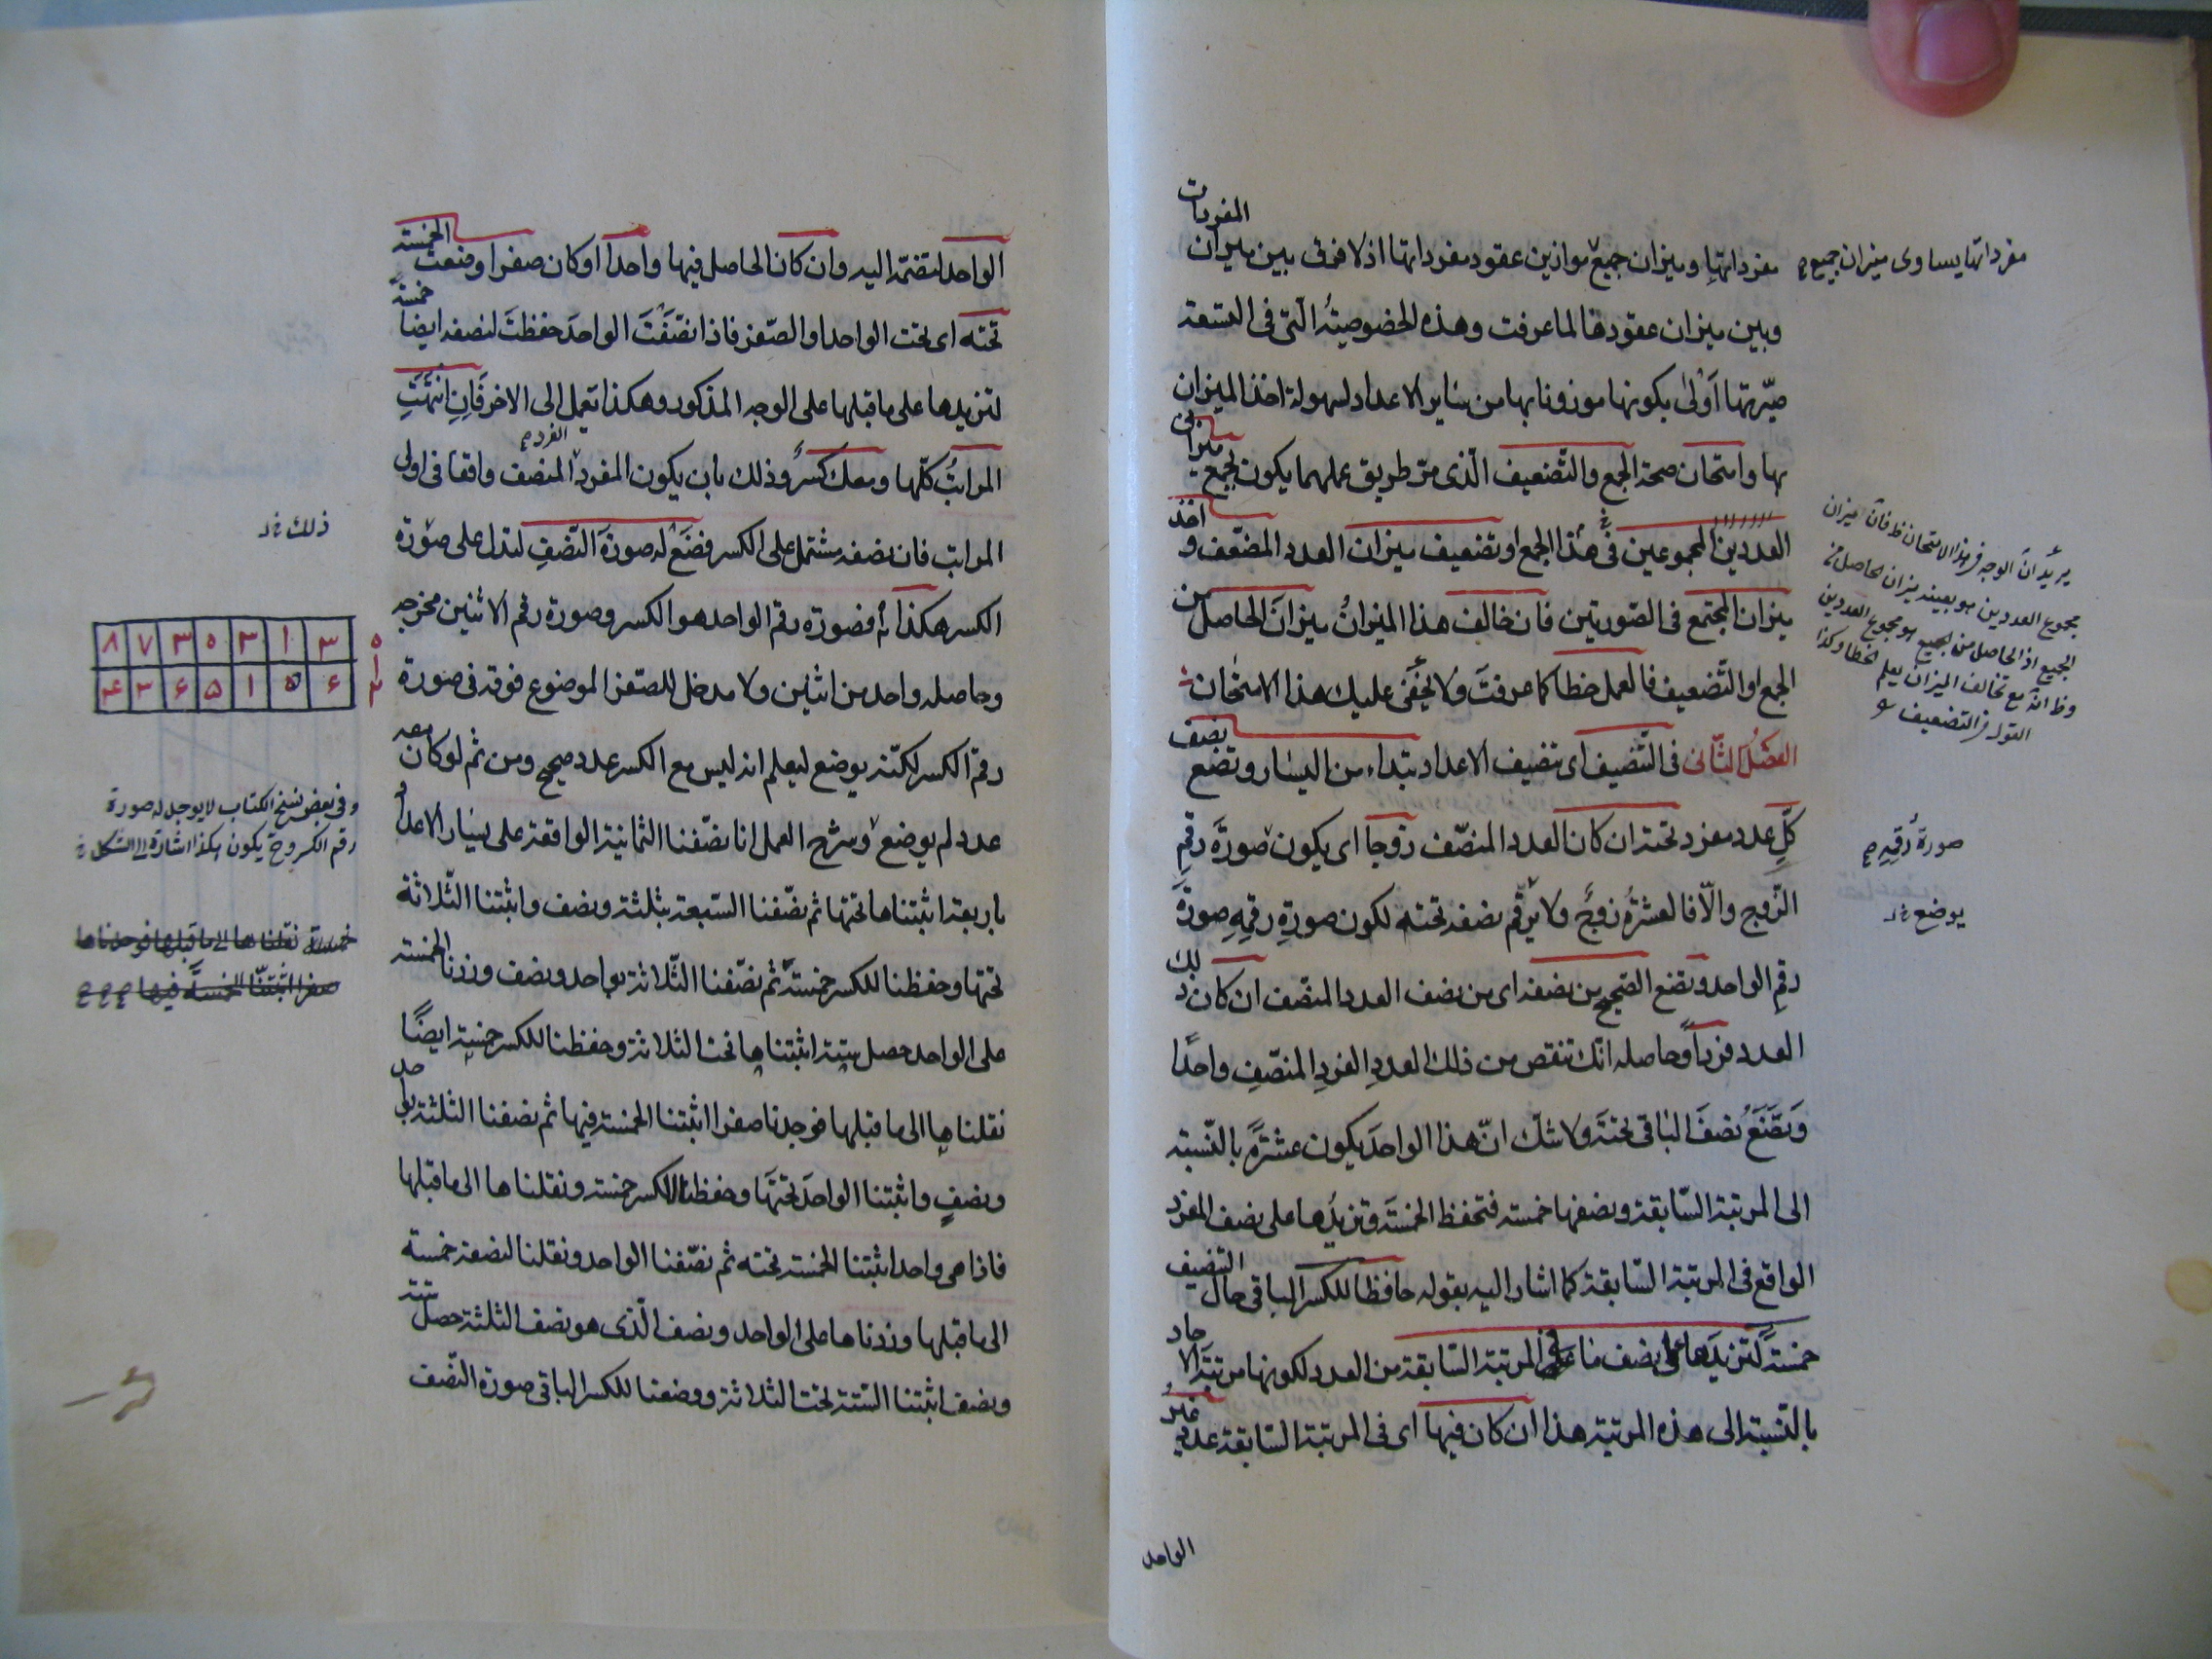 المفردات
مفرداتها وميزان جميع موازين عقود مفرداتها اذ لا فرق بين ميزان
وبين ميزان عقودها لما عرفت وهذه الخصوصية التى فى التسعة
صيّرتها اَوْلىٰ بكونها موزونا بها من سائر الاعداد لسهولة اخذ الميزان
بها وامتحان صحة الجمع والتّضعيف الّذى مرّ طريق عملهما يكون بجمع ميزانى
العددين المجموعين فى هذا الجمع او تضعيف ميزان العدد المضعّف واخذ
ميزان المجتمع فى الصّورتين فان خالف هذا الميزانُ ميزانَ الحاصل من
الجمع او التّضعيف فالعمل خطا كما عرفتَ ولا يخفىٰ عليك هذا الامتحان
الفَصْلُ الثّانى فى التّنصيف اى تنصيف الاعداد تبتداء من اليسار وتضع نصف
كلِّ عدد مفرد تحته ان كان العدد المنصّف زوجا اى يكون صورَة رقمِ
الزّوج والّا فالعشرُة زوجٌ ولا يرقم نصفه تحته لكون صورةِ رقمِهِ صورةَ
رقمِ الواحد وتضع الصّحيح من نصفه اى من نصف العدد المنصّف ان كان ذلك
العدد فرداً وحاصله انّك تنقص من ذلك العددِ الفردِ المنصّفِ واحدًا
وَتَضَعَ نصفَ الباقى تحته ولا شكّ انّ هذا الواحدَ يكون عشرةً بالنّسبة
الى المرتبة السّابقة ونصفها خمسة فتحفظ الخمسَة وتزيدُها على نصف المفرد
الواقع فى المرتبة السّابقة كما اشار اليه بقوله حافظا للكسر الباقى حال التنصيف
خمسةً لتزيدَها على نصف ما فى المرتبة السّابقة من العدد لكونها مرتبة الاحاد
بالنّسبة الى هذه المرتبة هذا ان كان فيها اى فى المرتبة السّابقة عددٌ غيرُ
الواحد
مفرداتها يساوى ميزان جميع
يريد انّ الوجه فى هذا الامتحان ظ فانّ ميزان
مجموع العددين هو بعينه ميزان الحاصل من
الجميع اذ الحاصل من الجميع هو مجموع العددين
وظ انّه مع تخالف الميزان يعلم الخطا وكذا
القول فى التضعيف
صورة رقمه
يوضع
الواحد لتضمّه اليه وان كان الحاصل فيها واحداً او كان صفرا وضعتَ الخمسة
تحته اى تحت الواحد او الصّفر فاذا نصّفْتَ الواحدَ حفظتَ لنصفه ايضا خمسةً
لتزيدها على ما قبلها على الوجه المذكور وهكذا تعمل الى الاخر فَاِنِ انتَهَتِ
المراتبُ كلّها ومعك كسرٌ وذلك بان يكون المفرد الفرد المنصف واقفا فى اولى
المراتب فان نصفه مشتمل على الكسر فضَعْ له صورَةَ النّصْفِ لتدل على صورة
الكسر هكذا فصورَة رقم الواحد هو الكسر وصورة رقم الاثنين مخرجه
وحاصله واحد من اثنين ولا مدخل للصّفر الموضوع فوقه فى صورة
رقم الكسر لكنّه يوضع ليعلم انه ليس مع الكسر عدد صحيح ومن ثم لو كان معه
عدد لم يوضع وشرح العمل انا نصّفنا الثمانية الواقعة على يسار الاعداد
باربعة اثبتناها تحتها ثم نصّفنا السّبعة بثلثة ونصف واثبتنا الثّلاثة
تحتها وحفظنا للكسر خمسةً ثم نصّفنا الثّلاثة بواحد ونصف وزدنا الخمسة
على الواحد حصل ستة اثبتناها تحت الثلاثة وحفظنا للكسر خمسة ايضًا
نقلناها الى ما قبلها فوجدنا صفرا اثبتنا الخمسة فيها ثم نصفنا الثلثة بواحد
ونصفٍ واثبتنا الواحدَ تحتهَا وحفظنا للكسر خمسة ونقلناها الى ما قبلها
فاذا هى واحد اثبتنا الخمسة تحته ثم نصّفنا الواحد ونقلنا لنصفه خمسة
الى ما قبلها وزدناها على الواحد ونصف الّذى هو نصف الثلثة حصل ستة
ونصف اثبتنا السّتة تحت الثلاثة ووضعنا للكسر الباقى صورة النّصف
ذلك
٨ ٧ ٣ ٥ ٣ ١ ٣
۴ ٣ ۶ ۵ ١ ۵ ۶
وفى بعض نسخ الكتاب لا يوجد له صورة
رقم الكسر وح يكون هكذا اشارة الى الشكل
خمسة نقلناها الى ما قبلها فوجدناها
صفرا اثبتنا الخمسة فيها